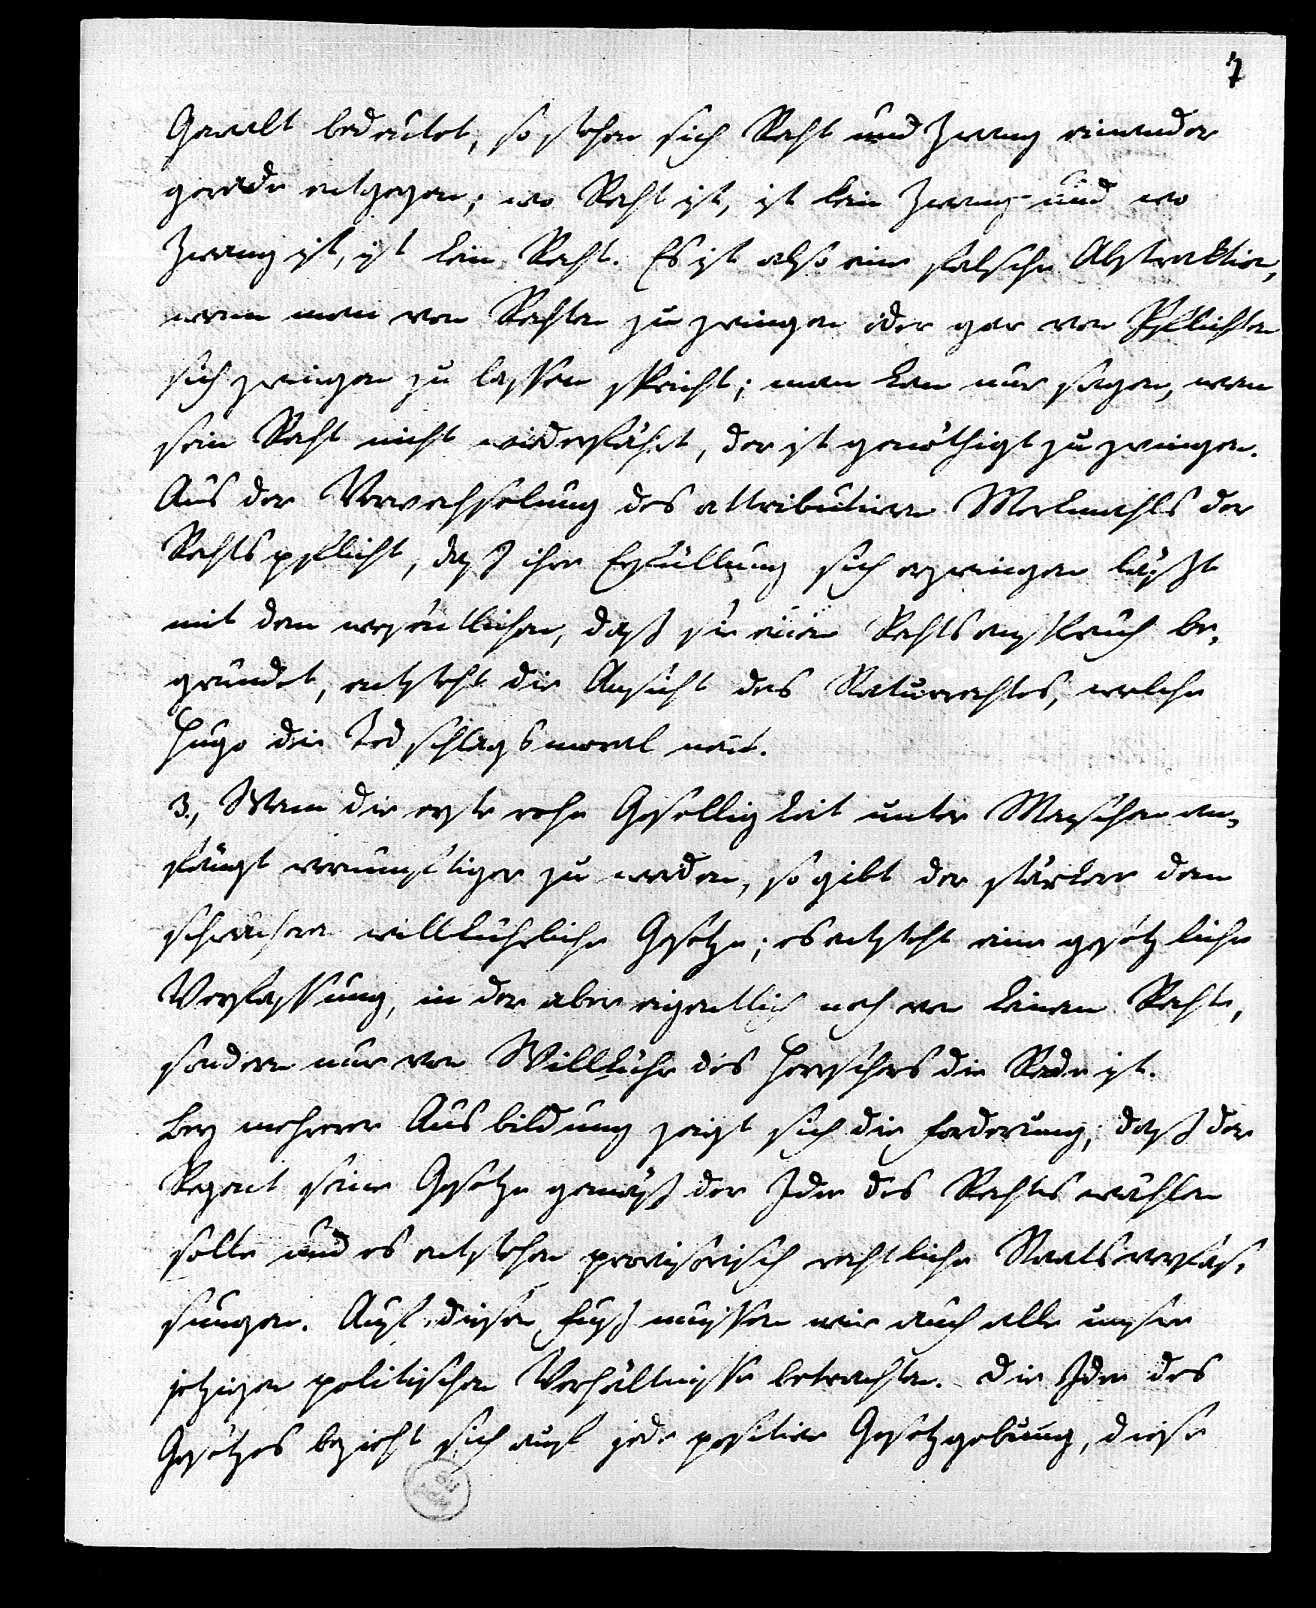 7
Gewalt bedeutet, so stehen sich Recht und Zwang einander
gerade entgegen; wo Recht ist, ist kein Zwang und wo
Zwang ist, ist kein Recht. Es ist also eine falsche Abstraktion,
wenn man von Rechten zu zwingen oder gar von Pflichten
sich zwingen zu lassen spricht; man kan nur sagen, wem
sein Recht nicht wiederfährt, der ist genöthigt zu zwingen.
Aus der Verwechselung des attributiven Merkmahls der
Rechtspflicht, daß ihre Erfüllung sich erzwingen läßt
mit dem wesentlichen, daß sie einen Rechtsanspruch be„
gründet, entsteht die Ansicht des Naturrechtes, welche
Hugo die Todschlagsmoral nent.
3., Wenn die erste rohe Geselligkeit unter Menschen an„
fängt vernünftiger zu werden, so gibt der stärkere dem
schwächern willkührliche Gesetze; es entsteht eine gesetzliche
Verfassung, in der aber eigentlich noch von keinem Rechte,
sondern nur von Willkühr des Herrschers die Rede ist.
Bey mehrerer Ausbildung zeigt sich die Forderung, daß der
Regent seine Gesetze gemäß der Idee des Rechtes wählen
solle und es entstehen provisorisch rechtliche Staatsverfas„
sungen. Auf diesen Fuß müssen wir auch alle unsre
jetzigen politischen Verhältnisse betrachten. Die Idee des
Gesetzes bezieht sich auf jede positive Gesetzgebung, diese